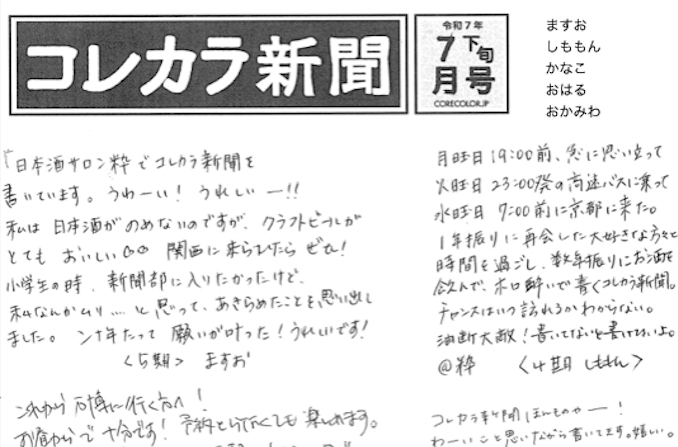 コレカラ新聞
令和7年
7月下旬号
CORECOLOR.JP
ますお
しももん
かなこ
おはる
おかみわ
「日本酒サロン粋でコレカラ新聞を
書いています。うわーい！うれしいー!!
私は日本酒がのめないのですが、クラフトビールが
とてもおいしい 関西に来られたら ぜひ！
小学生の時、新聞部に入りたかったけど、
私なんかムリ…と思って、あきらめたことを思い出し
ました。ン十年たって 願いが叶った！うれしいです！
＜5期＞ ますお
これから万博に行く方へ！
お昼からで十分です！予約とらなくても楽しめます。
月曜日19:00前、急に思い立って
火曜日23:00発の高速バスに乗って
水曜日7:00前に京都に来た。
1年振りに再会した大好きな方々と
時間を過ごし、数年振りにお酒を
飲んで、ホロ酔いで書くコレカラ新聞。
チャンスはいつ訪れるかわからない。
油断大敵！書いてないと書けないよ。
@粋 ＜4期 しももん＞
コレカラ新聞ほんものやー！
わーいこと思いだから書いてます。嬉しい。